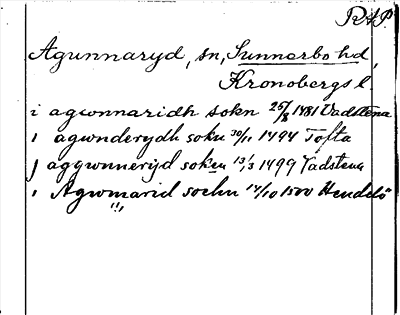 RAP.
Agunnaryd, sn, Sunnerbo hd,
Kronobergs l.
i agwnnaridh sokn 25/8 1481 Vadstena
i agwnderydh sokn 30/11 1494 Tofta
j aggwnnerijd soken 13/3 1499 Vadstena
i Agwmarid sochn 14/10 1500 Hendelö